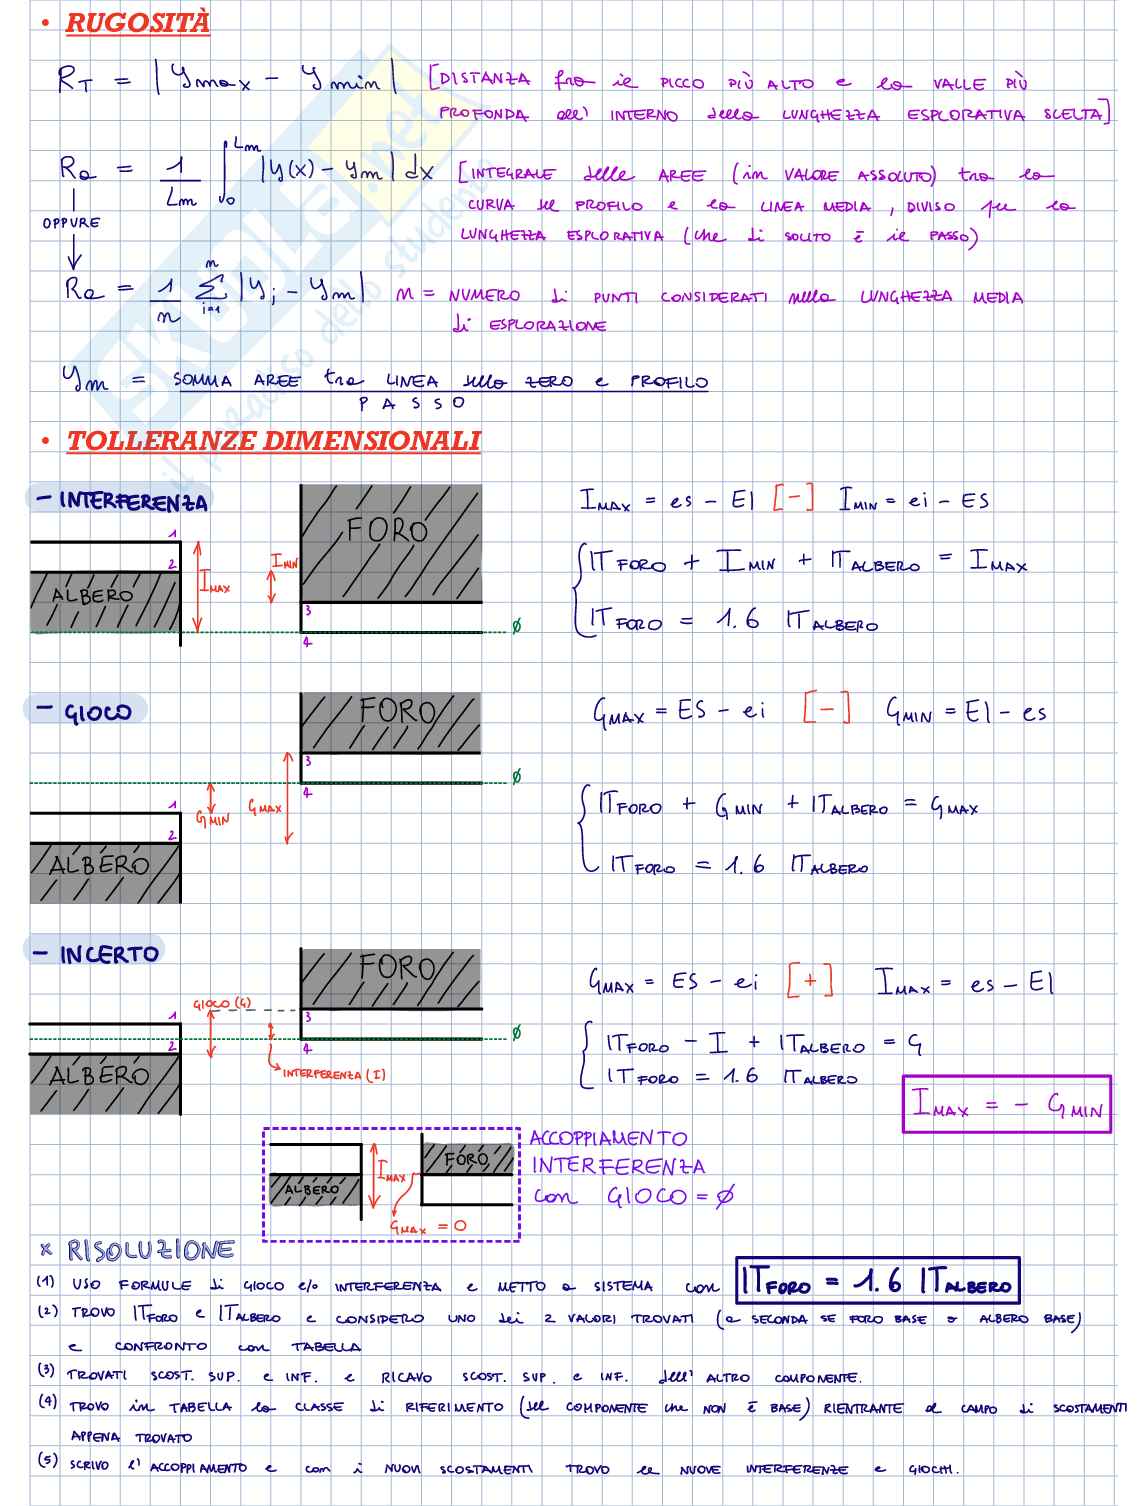 • RUGOSITÀ
R_T = |y_max - y_min| [DISTANZA fra il PICCO PIÙ ALTO e la VALLE PIÙ
PROFONDA all' INTERNO della LUNGHEZZA ESPLORATIVA SCELTA]
R_a = 1/L_m ∫_0^{L_m} |y(x) - y_m| dx [INTEGRALE delle AREE (in VALORE ASSOLUTO) tra la
CURVA del PROFILO e la LINEA MEDIA, DIVISO per la
LUNGHEZZA ESPLORATIVA (che di SOLITO È il PASSO)
OPPURE
R_a = 1/n Σ_{i=1}^{n} |y_i - y_m| n = NUMERO di PUNTI CONSIDERATI nella LUNGHEZZA MEDIA
di ESPLORAZIONE
y_m = SOMMA AREE tra LINEA dello ZERO e PROFILO
PASSO
• TOLLERANZE DIMENSIONALI
- INTERFERENZA
1
2
ALBERO
I_MAX
I_MIN
FORO
3
4
ø
I_MAX = es - EI [-] I_MIN = ei - ES
IT_FORO + I_MIN + IT_ALBERO = I_MAX
IT_FORO = 1.6 IT_ALBERO
- GIOCO
FORO
3
4
ø
1
2
ALBERO
G_MIN
G_MAX
G_MAX = ES - ei [-] G_MIN = EI - es
IT_FORO + G_MIN + IT_ALBERO = G_MAX
IT_FORO = 1.6 IT_ALBERO
- INCERTO
FORO
GIOCO (G)
1
2
3
4
ø
ALBERO
INTERFERENZA (I)
G_MAX = ES - ei [+] I_MAX = es - EI
IT_FORO - I + IT_ALBERO = G
IT_FORO = 1.6 IT_ALBERO
I_MAX = - G_MIN
ALBERO
I_MAX
FORO
G_MAX = 0
ACCOPPIAMENTO
INTERFERENZA
con GIOCO = ø
x RISOLUZIONE
(1) USO FORMULE di GIOCO e/o INTERFERENZA e METTO a SISTEMA con IT_FORO = 1.6 IT_ALBERO
(2) TROVO IT_FORO e IT_ALBERO e CONSIDERO UNO dei 2 VALORI TROVATI (a SECONDA SE FORO BASE o ALBERO BASE)
e CONFRONTO con TABELLA
(3) TROVATI SCOST. SUP. e INF. e RICAVO SCOST. SUP. e INF. dell' ALTRO COMPONENTE.
(4) TROVO in TABELLA la CLASSE di RIFERIMENTO (del COMPONENTE che NON È BASE) RIENTRANTE al CAMPO di SCOSTAMENTI
APPENA TROVATO
(5) SCRIVO l' ACCOPPIAMENTO e con i NUOVI SCOSTAMENTI TROVO le NUOVE INTERFERENZE e GIOCHI.
SKUOLA.net
il paradiso dello studente